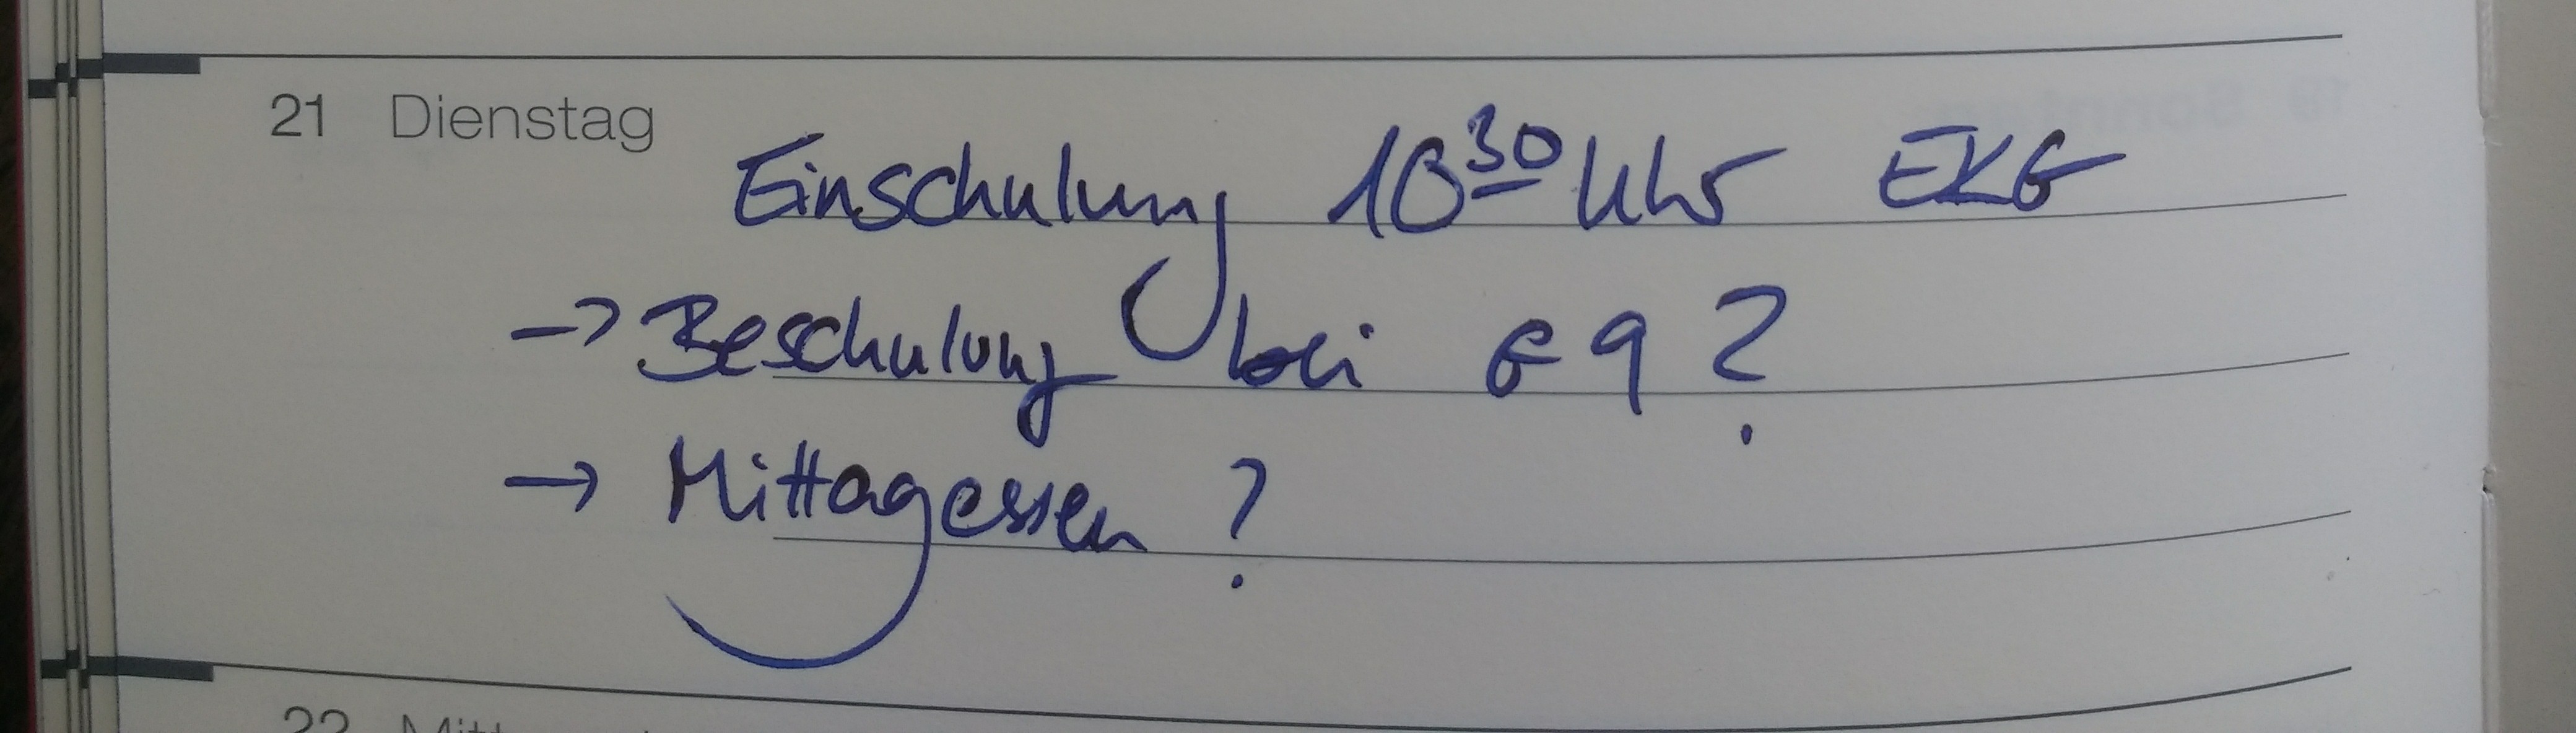 21 Dienstag
Einschulung 10³⁰ Uhr EKG
→ Beschulung bei G9?
→ Mittagessen?
22